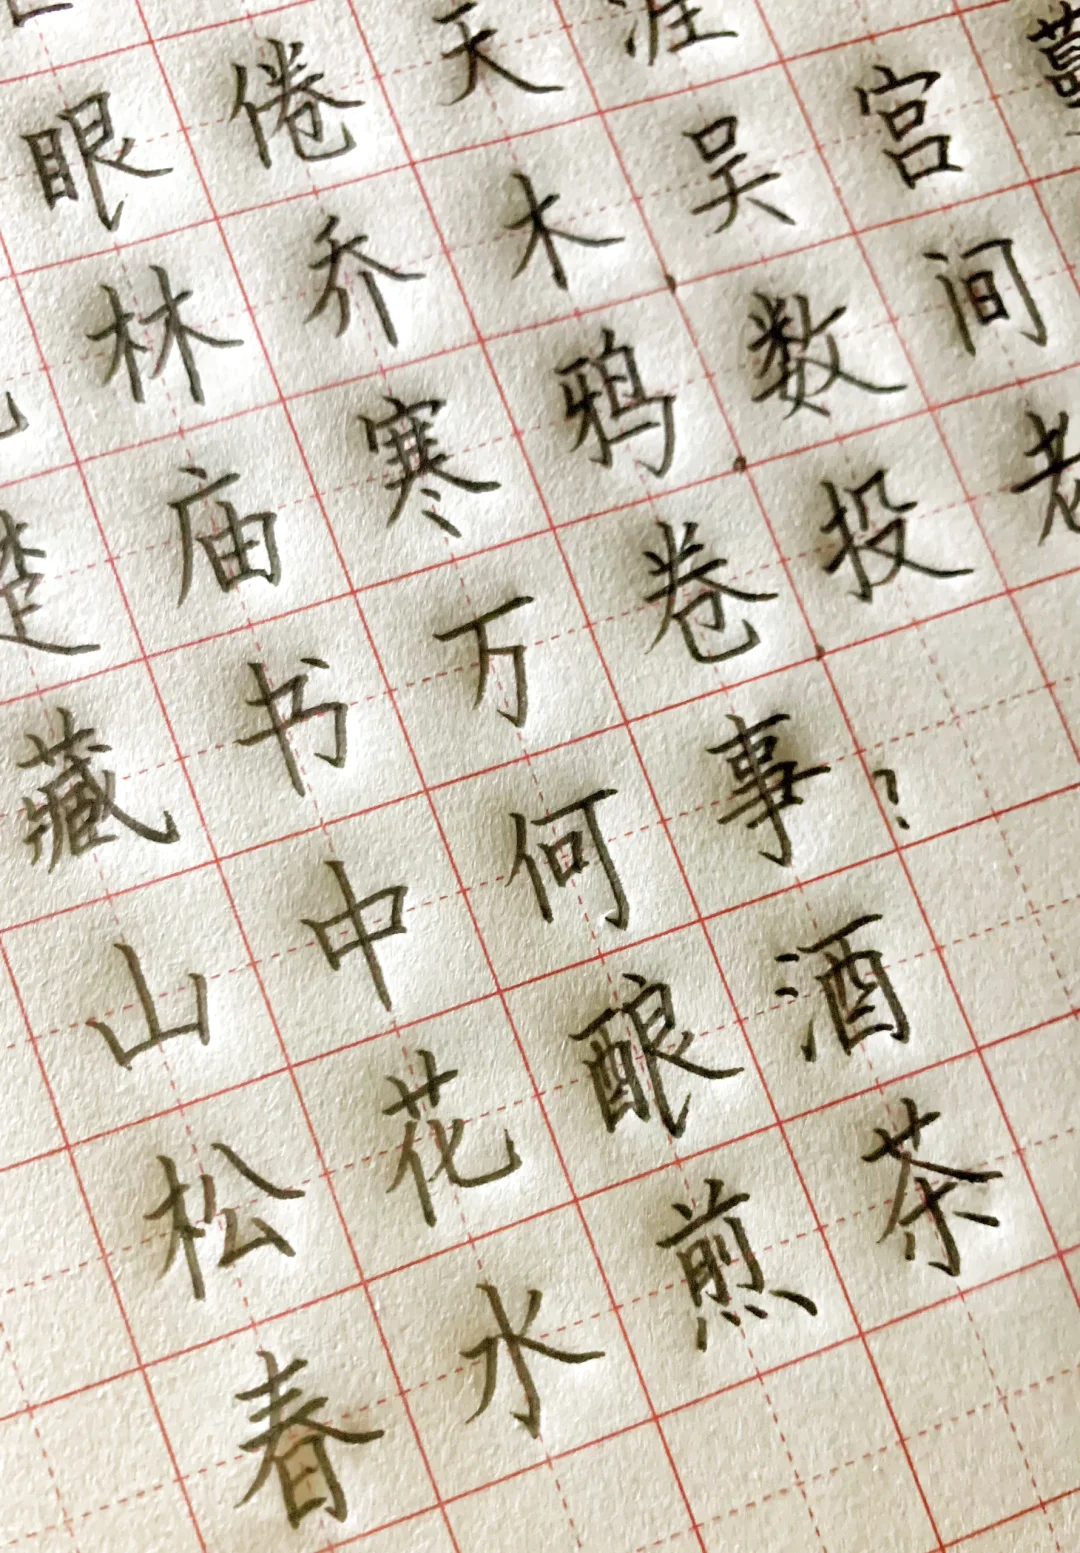 眼倦天涯
林乔木吴宫
楚庙寒鸦数间
藏书万卷投老
山中何事?
松花酿酒
春水煎茶